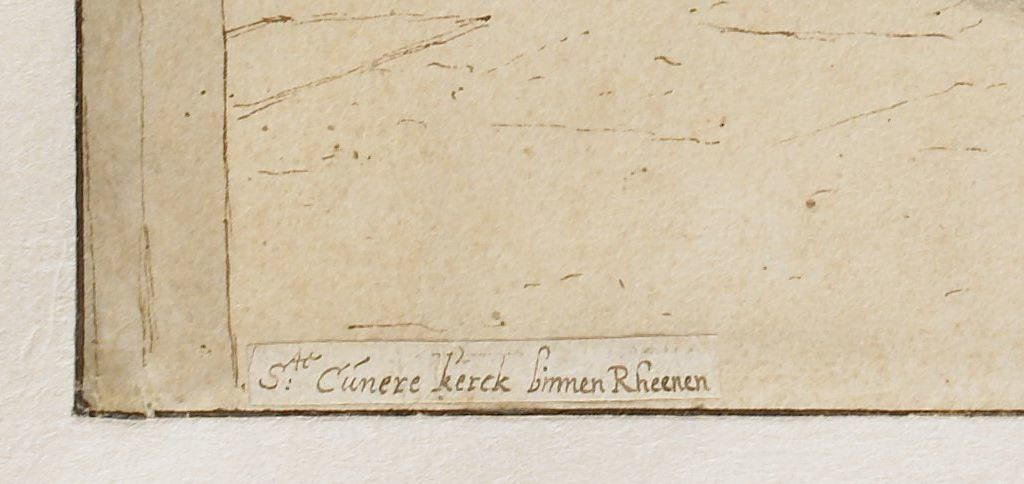 S:^te Cúnere kerck binnen Rheenen